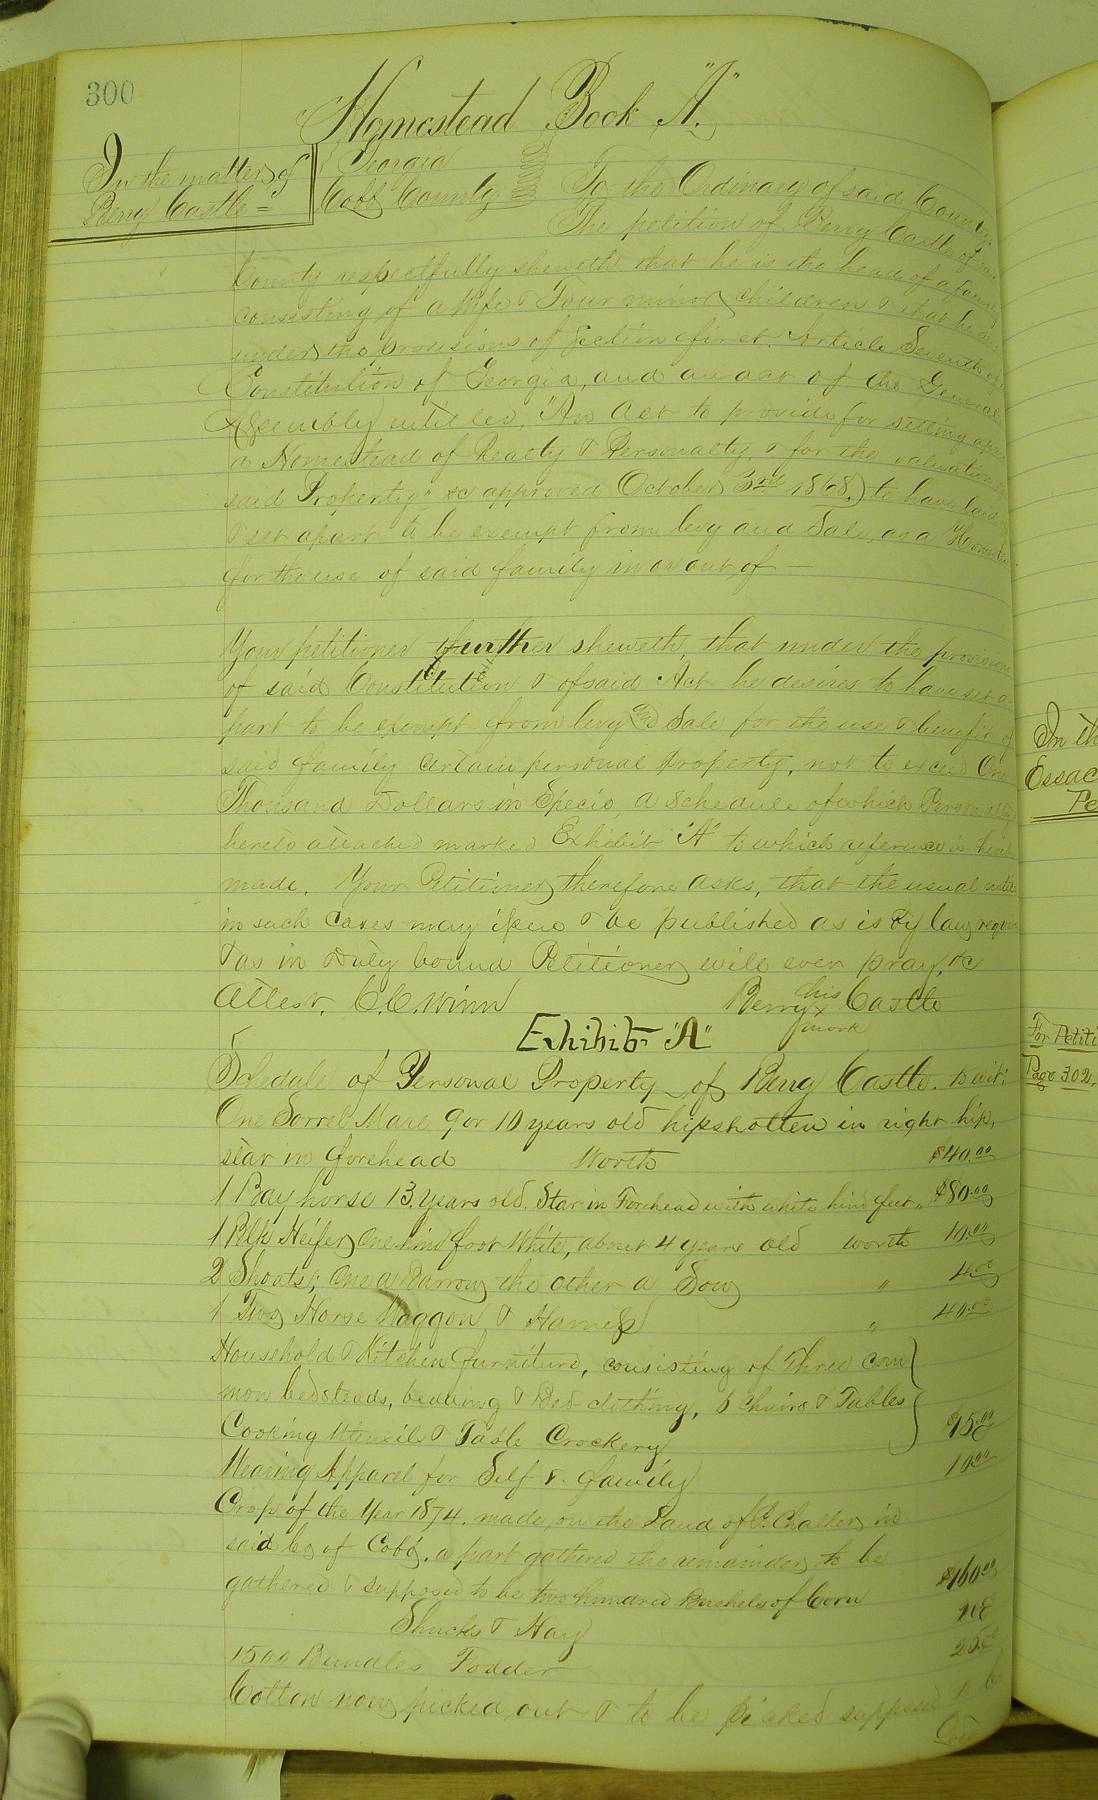 300
Homestead Book "A".
In the matter of
Berry Castle =
Georgia
Cobb County
To the Ordinary of said County.
The petition of Berry Castle of
County respectfully sheweth that he is the head of a family
consisting of a Wife & Four minor children & that he
under the provisions of Section first. Article Seventh of
Constitution of Georgia, and an act of the General
Assembly entitled, "An Act to provide for setting apart
a Homestead of Realty & Personalty, & for the valuation
said Property" &c approved October 3rd 1868,) to have
& set apart to be exempt from levy and Sale, as a
for the use of said family in or out of —
Your petitioner further sheweth, that under the provisions
of said Constitution & of said Act he desires to have set a-
part to be exempt from levy & Sale for the use & benefit of
said family certain personal property, not to exceed One
Thousand Dollars in Specie, a schedule of which
hereto attached marked Exhibit "A" to which reference is
made. Your Petitioner therefore asks, that the usual
in such cases may issue & be published as is by law
& as in Duty bound Petitioner will ever pray, &c
Attest, C.C. Winn
Berry his Castle
x
mark
Exhibit "A"
Schedule of Personal Property of Berry Castle. to wit:
One Sorrel Mare 9 or 10 years old hipshotten in right hip,
star in forehead Worth $40.00
1 Bay horse 13 years old. Star in Forehead with white hind feet, $80.00
1 Blk Heifer one hind foot White, about 4 years old worth 10.00
2 Shoats, One a Barrow the other a Sow "
1 Two Horse Waggon & Harness " 40.00
Household & Kitchen furniture, consisting of Three Com
mon bedsteads, bedding & Bed clothing, 6 Chairs & Tables
Cooking Utensils & Table Crockery $75.00
Wearing Apparel for Self & family 10.00
Crop of the Year 1874. made on the Land of Challer in
said Co of Cobb, a part gathered the remainder to be
gathered & supposed to be two hundred Bushels of Corn $160.00
Shucks & Hay
1500 Bundles Fodder
Cotton now picked out & to be picked supposed to be
In th
Essac
Pe
For Petiti
Page 302.